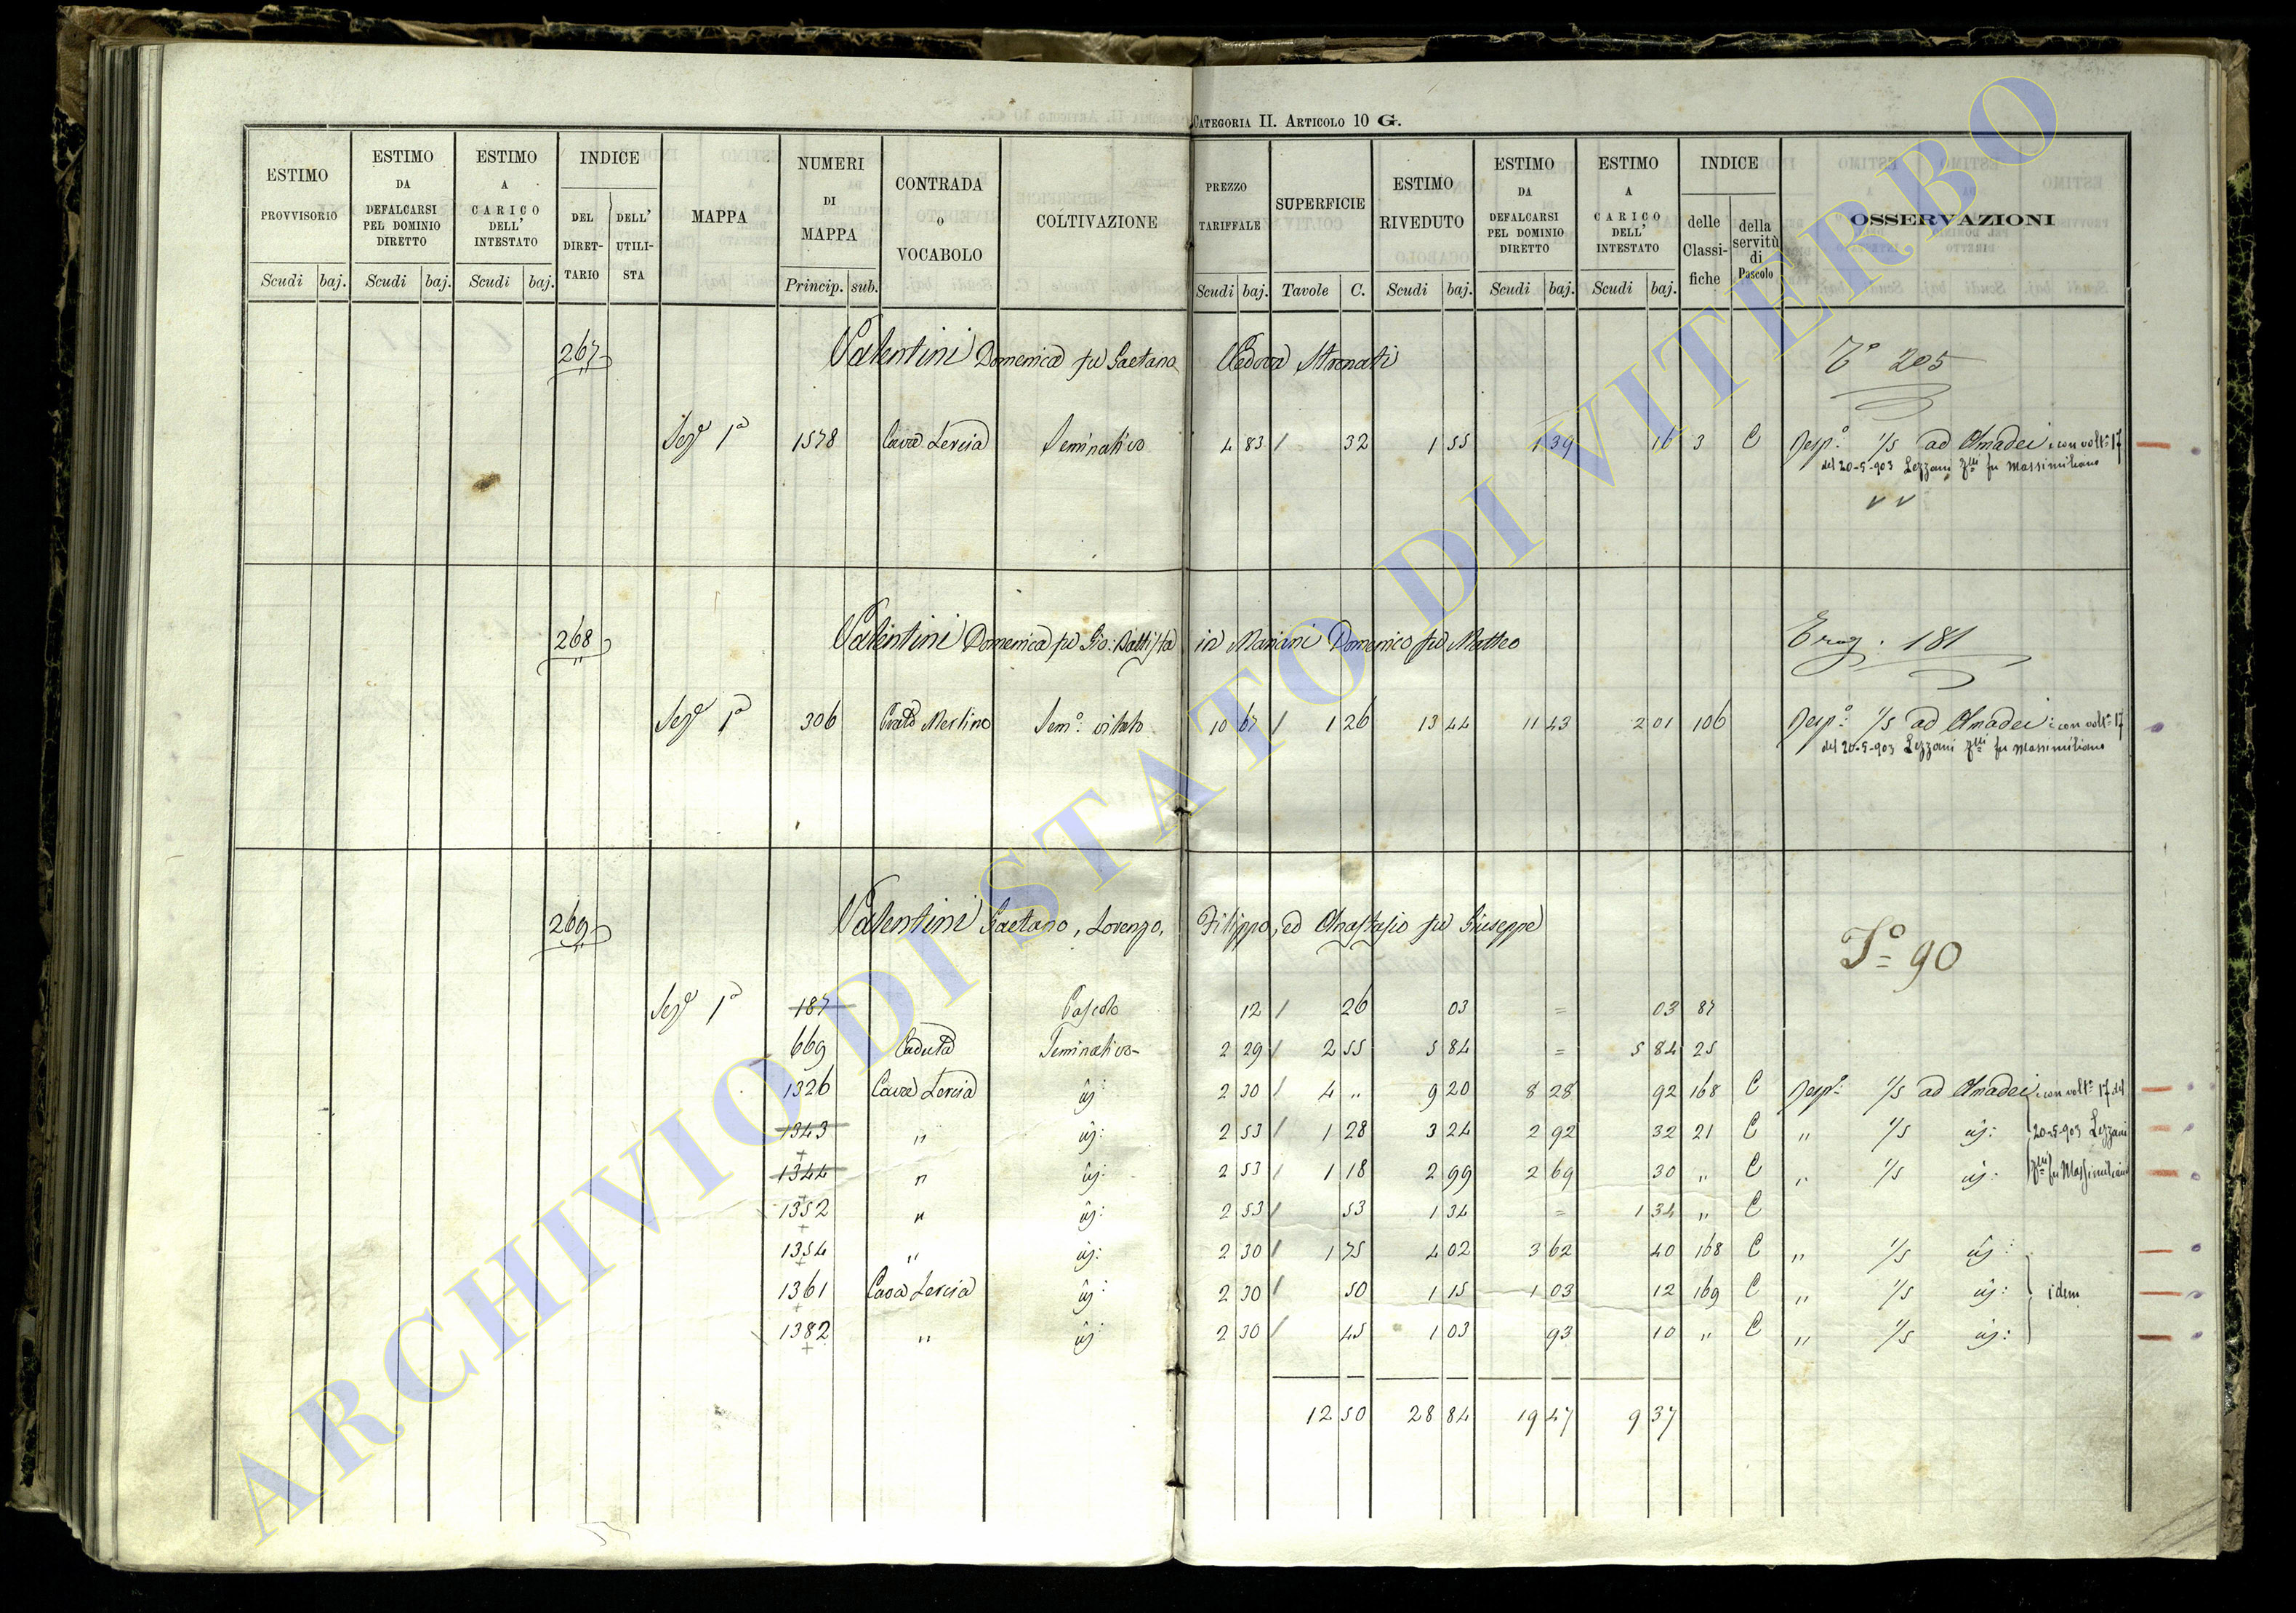 CATEGORIA II. ARTICOLO 10 G.
ESTIMO PROVVISORIO Scudi baj.
ESTIMO DA DEFALCARSI PEL DOMINIO DIRETTO Scudi baj.
ESTIMO A CARICO DELL' INTESTATO Scudi baj.
INDICE DEL DIRET-TARIO DELL' UTILI-STA
MAPPA
NUMERI DI MAPPA Princip. sub.
CONTRADA O VOCABOLO
COLTIVAZIONE
PREZZO TARIFFALE Scudi baj.
SUPERFICIE Tavole C.
ESTIMO RIVEDUTO Scudi baj.
ESTIMO DA DEFALCARSI PEL DOMINIO DIRETTO Scudi baj.
ESTIMO A CARICO DELL' INTESTATO Scudi baj.
INDICE delle Classi-fiche della servitù di Pascolo
OSSERVAZIONI
267 Valentini Domenica fu Gaetano Vedova Stronati 205
Seze 1a 1578 Cava Lercia Seminativo 4 83 / 32 1 55 1 39 16 3 C Resp: 1/5 ad Amadei: con volt: 17
del 20-5-903 Lezzani fu Massimiliano
v v
268 Valentini Domenica fu Gio: Battista in Mariani Domenico fu Matteo 181
Seze 1a 306 Prato Merlino Semo: vitato 10 67 / 1 26 13 44 11 43 2 01 106 Resp: 1/5 ad Amadei: con volt: 17
del 20-5-903 Lezzani fu Massimiliano
269 Valentini Gaetano, Lorenzo, Filippo, ed Anastasio fu Giuseppe 90
Seze 1a 187 Pascolo 12 / 26 03 = 03 87
669 Caduta Seminativo 2 29 / 2 55 5 84 = 5 84 25
1326 Cava Lercia id: 2 30 / 4 " 9 20 8 28 92 168 C Resp: 1/5 ad Amadei: con volt: 17 del
1343 " id: 2 53 / 1 28 3 24 2 92 32 21 C " 1/5 id: 20-5-903 Lezzani
1344 " id: 2 53 / 1 18 2 99 2 69 30 " C " 1/5 id: fu Massimiliano
1352 " id: 2 53 / 53 1 34 = 1 34 " C
1354 " id: 2 30 / 1 75 4 02 3 62 40 168 C " 1/5 id:
1361 Cava Lercia id: 2 30 / 50 1 15 1 03 12 169 C " 1/5 id: idem
1382 " id: 2 30 / 45 1 03 93 10 " C " 1/5 id:
12 50 28 84 19 47 9 37
ARCHIVIO DI STATO DI VITERBO